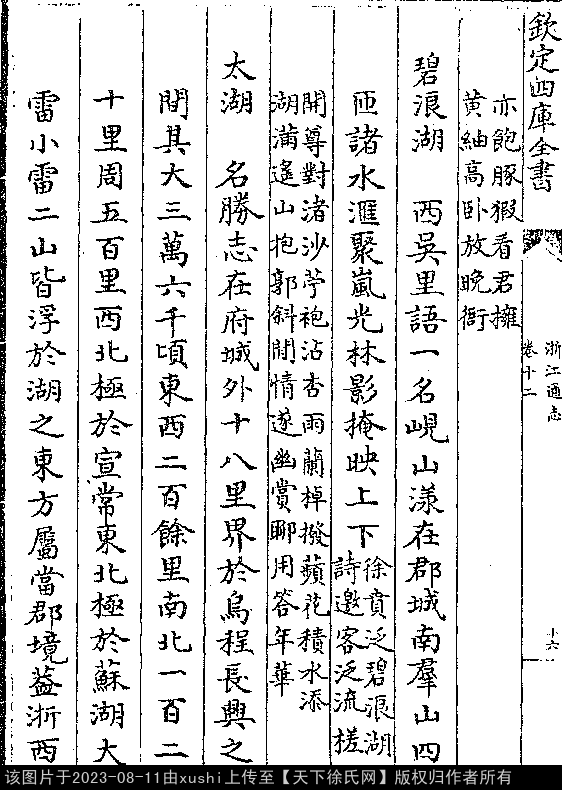 欽定四庫全書
浙江通志
卷十二
十六
亦飽豚猳看君擁
黄紬高卧放晚衙
碧浪湖　西吳里語一名峴山漾在郡城南羣山四
匝諸水滙聚嵐光林影掩映上下
徐賁泛碧浪湖
詩邀客泛流槎
開尊對渚沙苧袍沾杏雨蘭棹撥蘋花積水添
湖滿遙山抱郭斜閒情遂幽賞聊用答年華
太湖　名勝志在府城外十八里界於烏程長興之
間其大三萬六千頃東西二百餘里南北一百二
十里周五百里西北極於宣常東北極於蘇湖大
雷小雷二山皆浮於湖之東方屬當郡境葢浙西
该图片于2023-08-11由xushi上传至【天下徐氏网】版权归作者所有